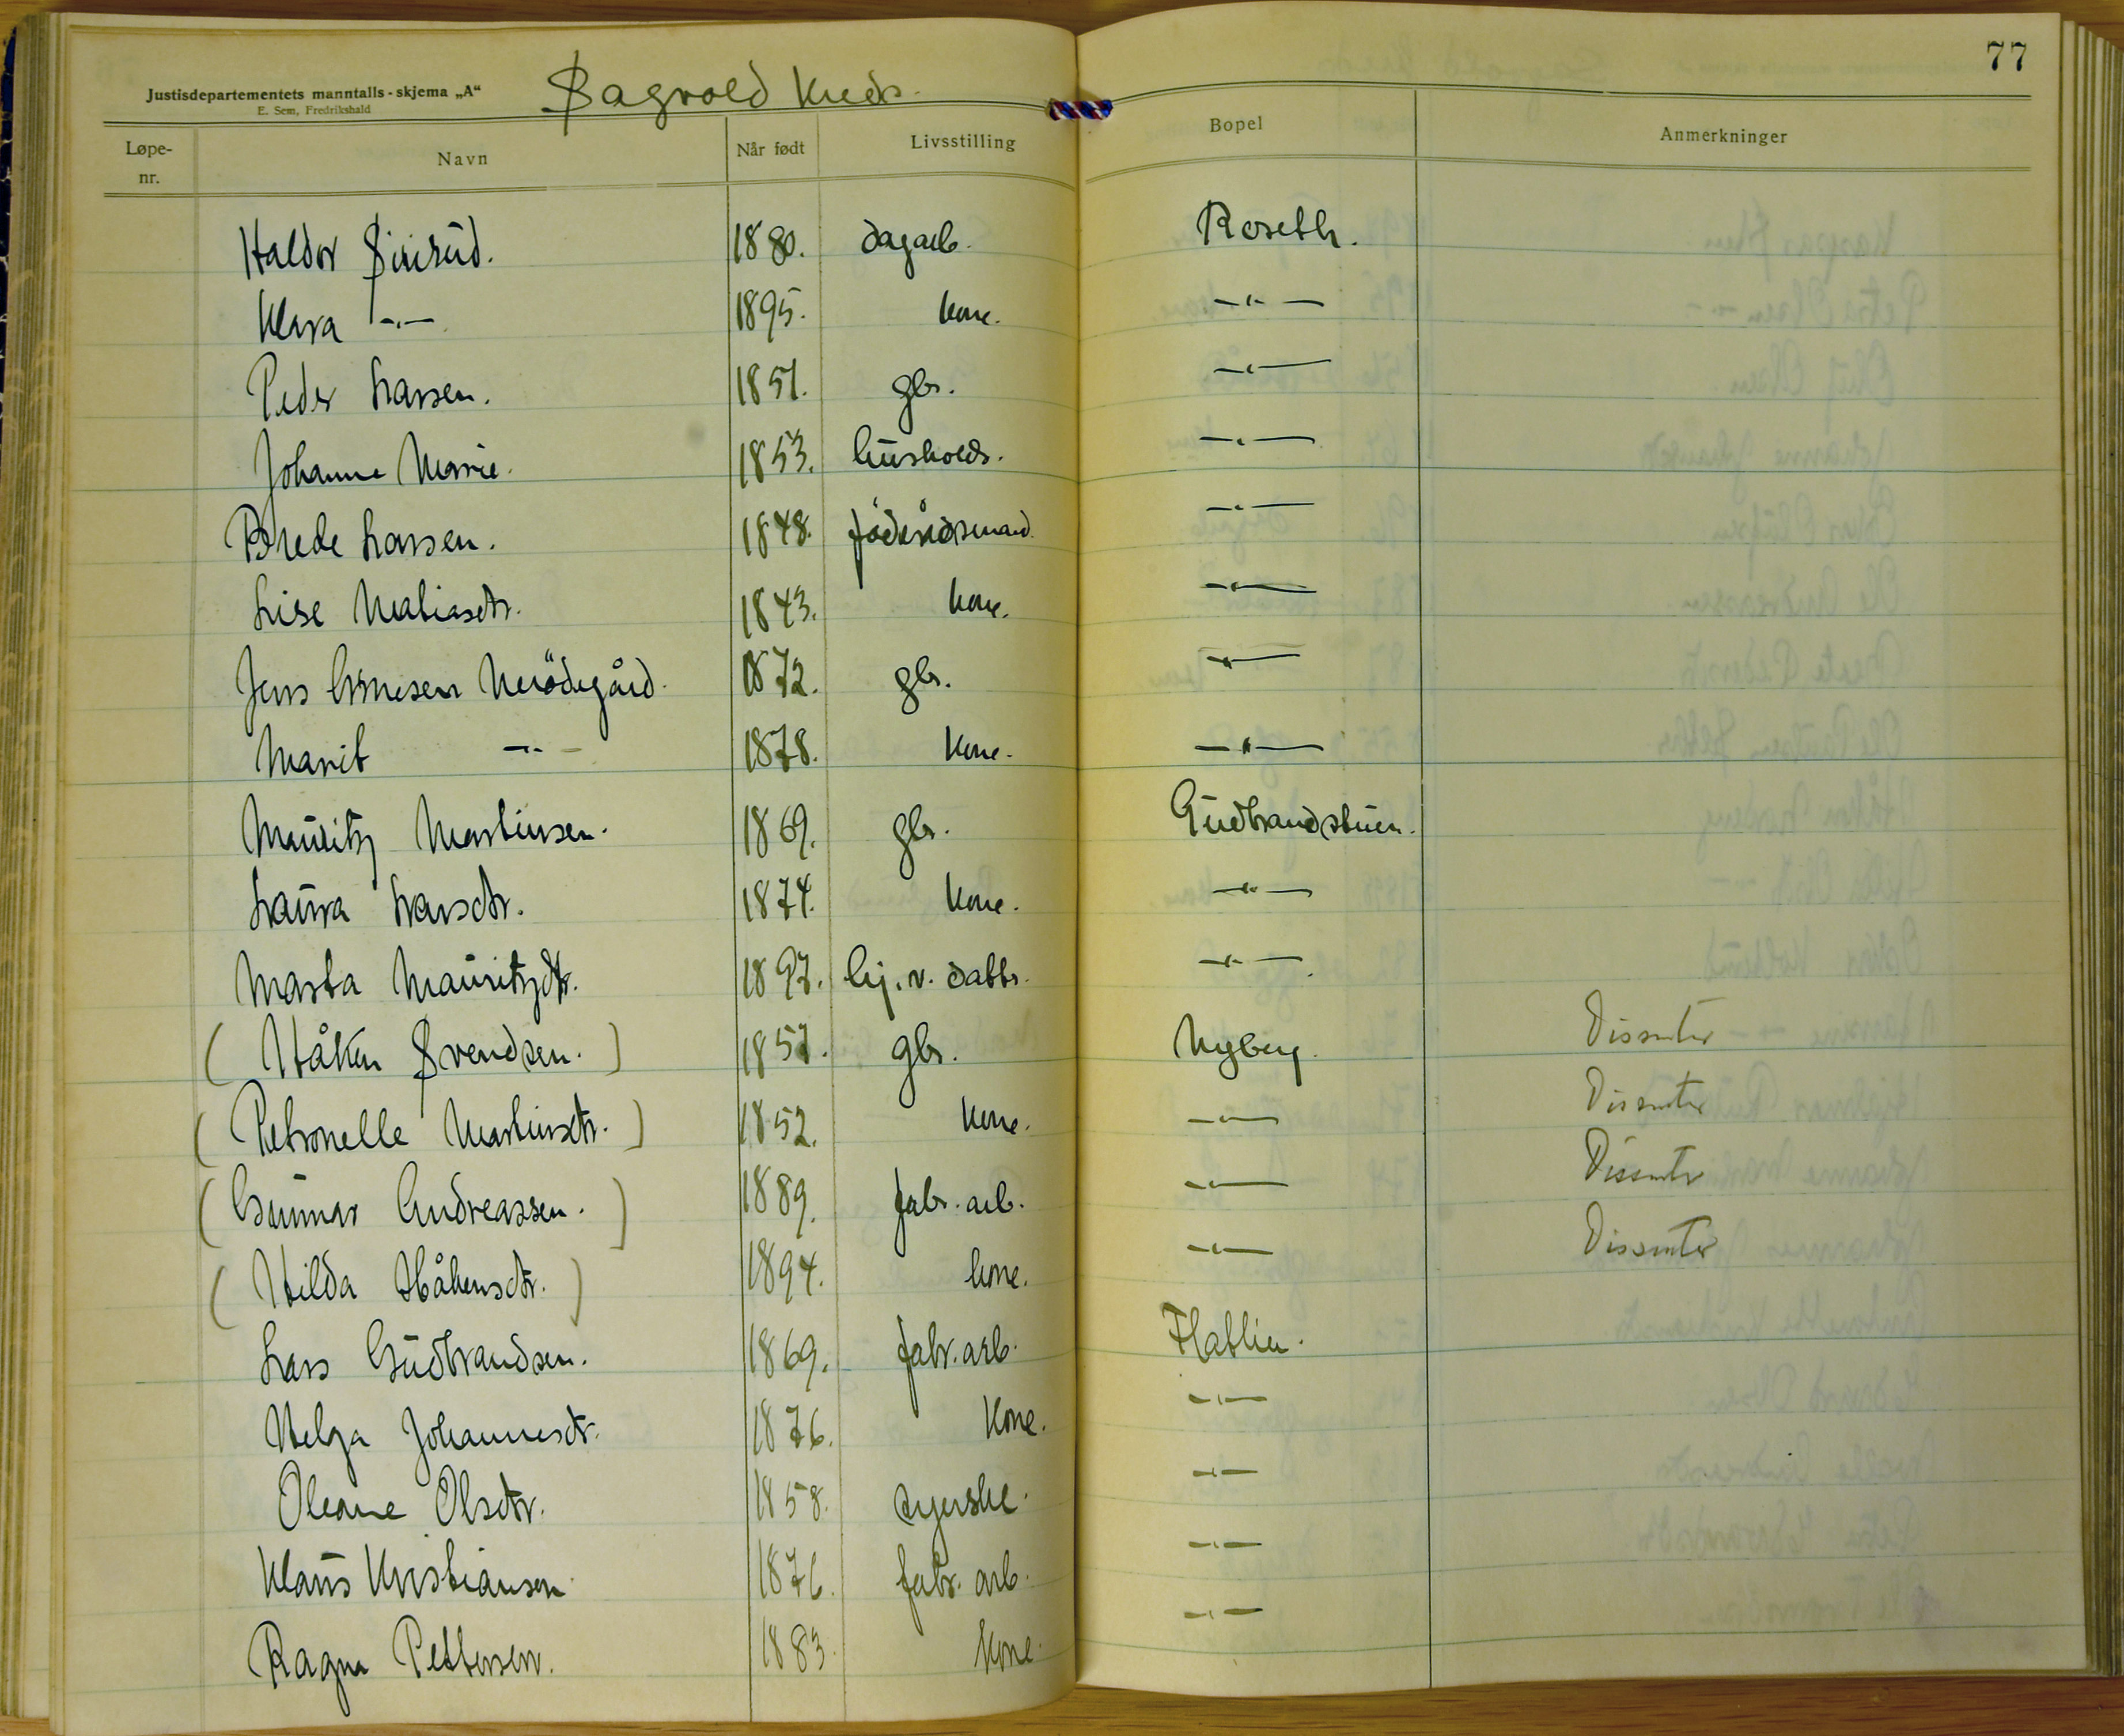 77
Justisdepartementets manntalls-skjema „A“ Sagvold Kreds.
E. Sem, Fredrikshald
Løpe-nr. Navn Når født Livsstilling Bopel Anmerkninger
Haldor 1880. dagarb. Roseth.
Klara -„- 1895. kone. -„-
Peder Larsen. 1851. gbr. -„-
Johanne Marie. 1853. husholds. -„-
Brede Larsen. 1848. föderådsmand -„-
Lise Matiasdtr. 1843. kone. -„-
Jens Arnesen 1872. gbr. -„-
Marit -„- 1878. kone. -„-
Mauritz Martinsen. 1869. gbr. Gudbrandstuen.
Laura Larsdtr. 1874. kone. -„-
Marta Mauritzdtr. 1897. hj. v. datter. -„-
( Håken Svendsen. ) 1857. gbr. Nyberg. Dissenter
( Petronelle Martinsdtr. ) 1852. kone. -„- Dissenter
( Gunnar Andreassen. ) 1889. fabr. arb. -„- Dissenter
( Hilda Håkensdtr. ) 1894. kone. -„- Dissenter
Lars Gudbrandsen. 1869. fabr. arb. Flatlien.
Helga Johannesdtr. 1876. kone. -„-
Oleane Olsdtr. 1858. syerske. -„-
Klaus Kristiansen 1876. fabr. arb. -„-
Ragna Pettersen. 1883. kone. -„-